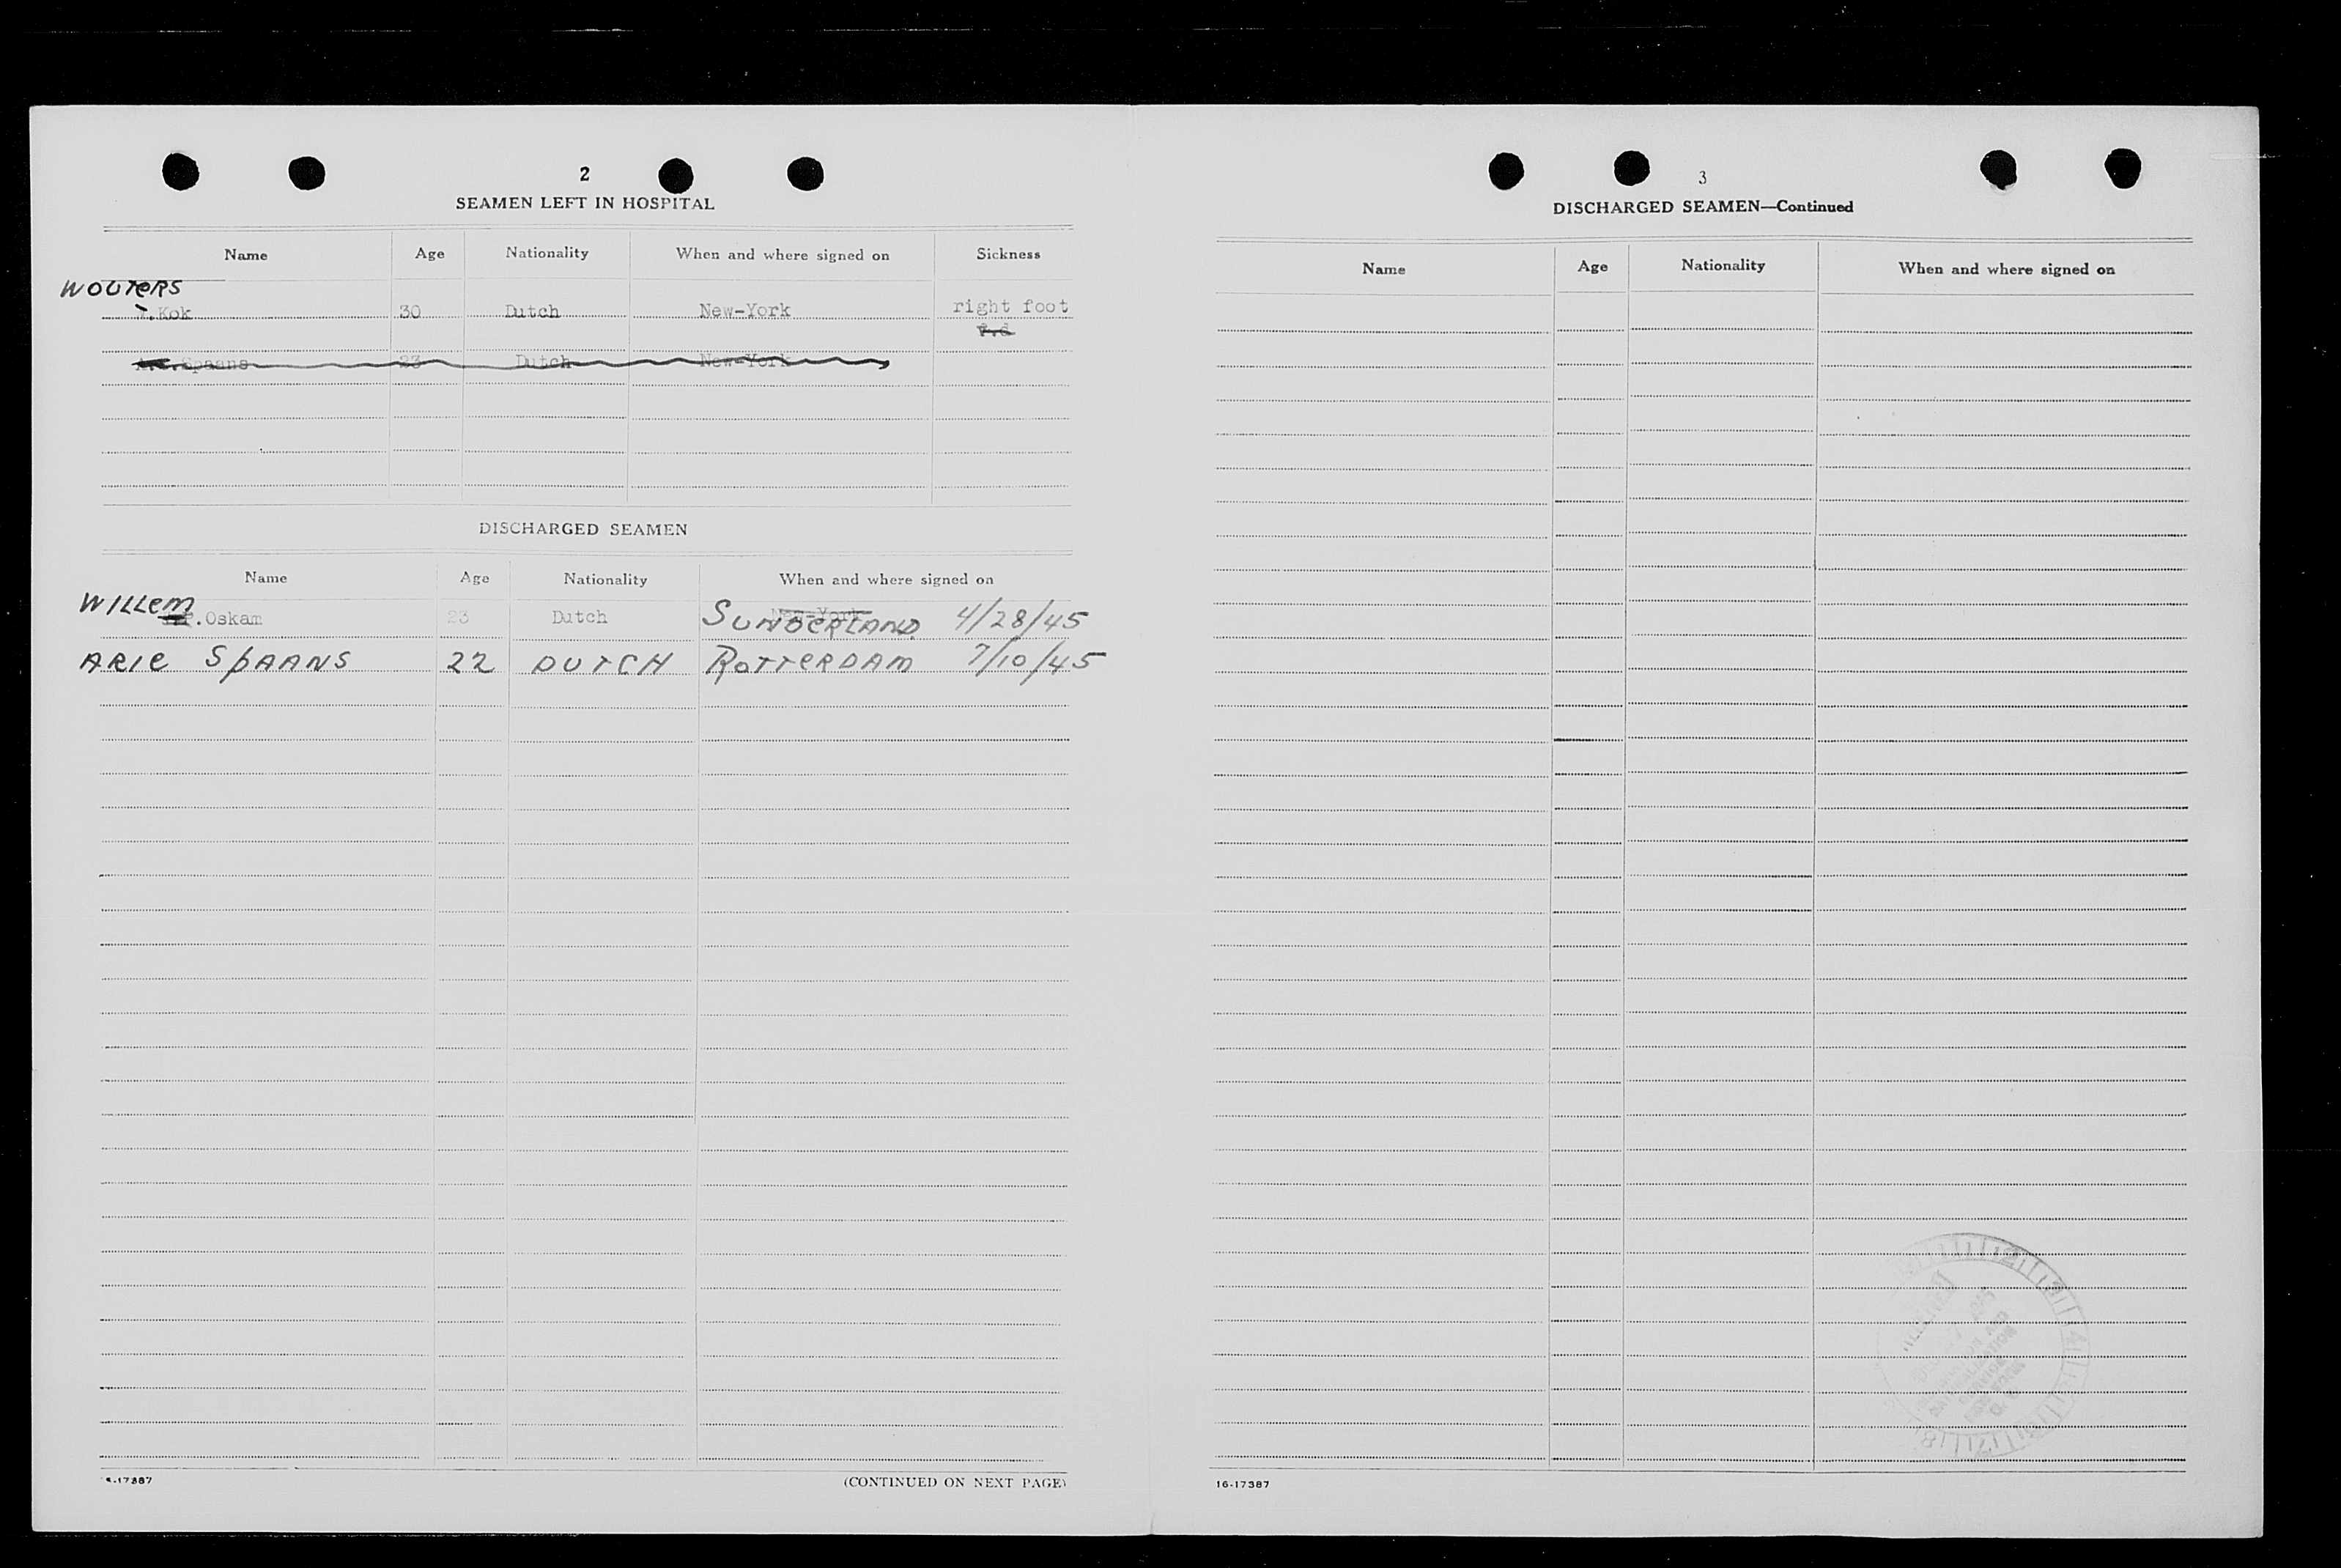 2
SEAMEN LEFT IN HOSPITAL
Name Age Nationality When and where signed on Sickness
WOUTERS
.Kok 30 Dutch New-York right foot
Spaans 23 Dutch New-York
DISCHARGED SEAMEN
Name Age Nationality When and where signed on
WILLEM .Oskam 23 Dutch New-York SUNDERLAND 4/28/45
ARIE SPAANS 22 DUTCH ROTTERDAM 7/10/45
-17387 (CONTINUED ON NEXT PAGE)
3
DISCHARGED SEAMEN—Continued
Name Age Nationality When and where signed on
16-17387